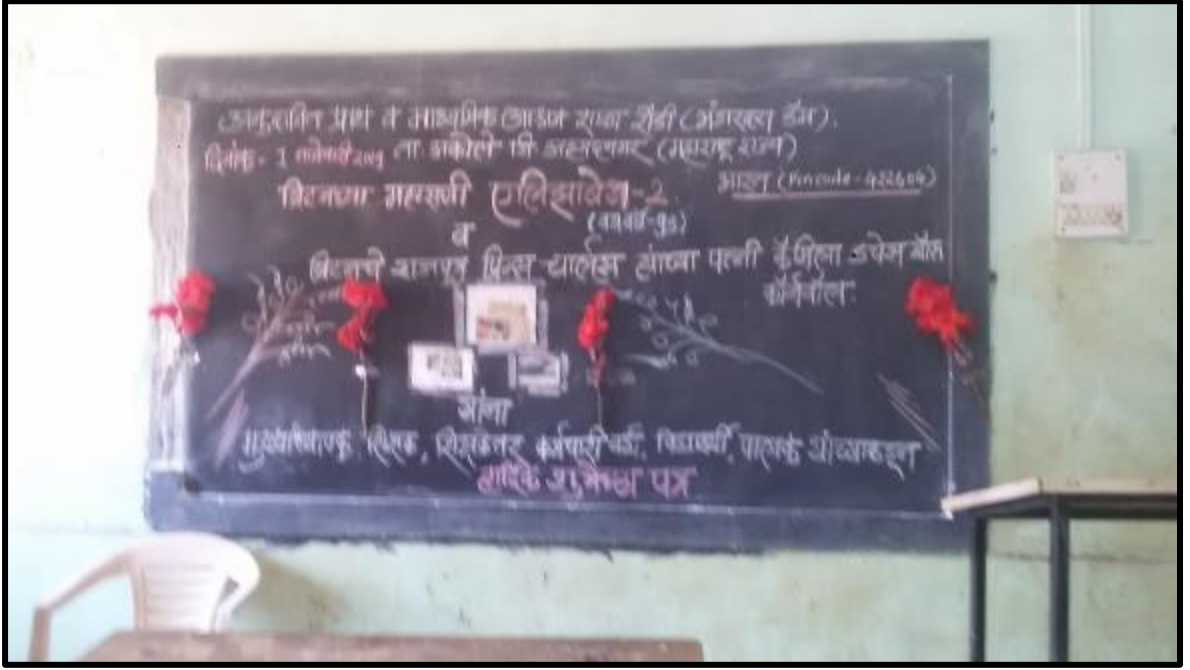 अनुदानित प्राथ व माध्यमिक आश्रम शाळा शेंडी (भंडारदरा डॅम).
दिनांक - 1 ता. अकोले जि अहमदनगर (महाराष्ट्र राज्य)
भारत (Pincode - 422604)
ब्रिटनच्या महाराणी एलिझाबेथ-2.
व
ब्रिटनचे राजपुत्र प्रिन्स चार्लस यांच्या पत्नी डचेस ऑफ
कॉर्नवॉल.
यांना
मुख्याध्यापक, शिक्षक, शिक्षकेतर कर्मचारी वर्ग, विद्यार्थी, पालक यांच्याकडून
हार्दिक शुभेच्छा पत्र